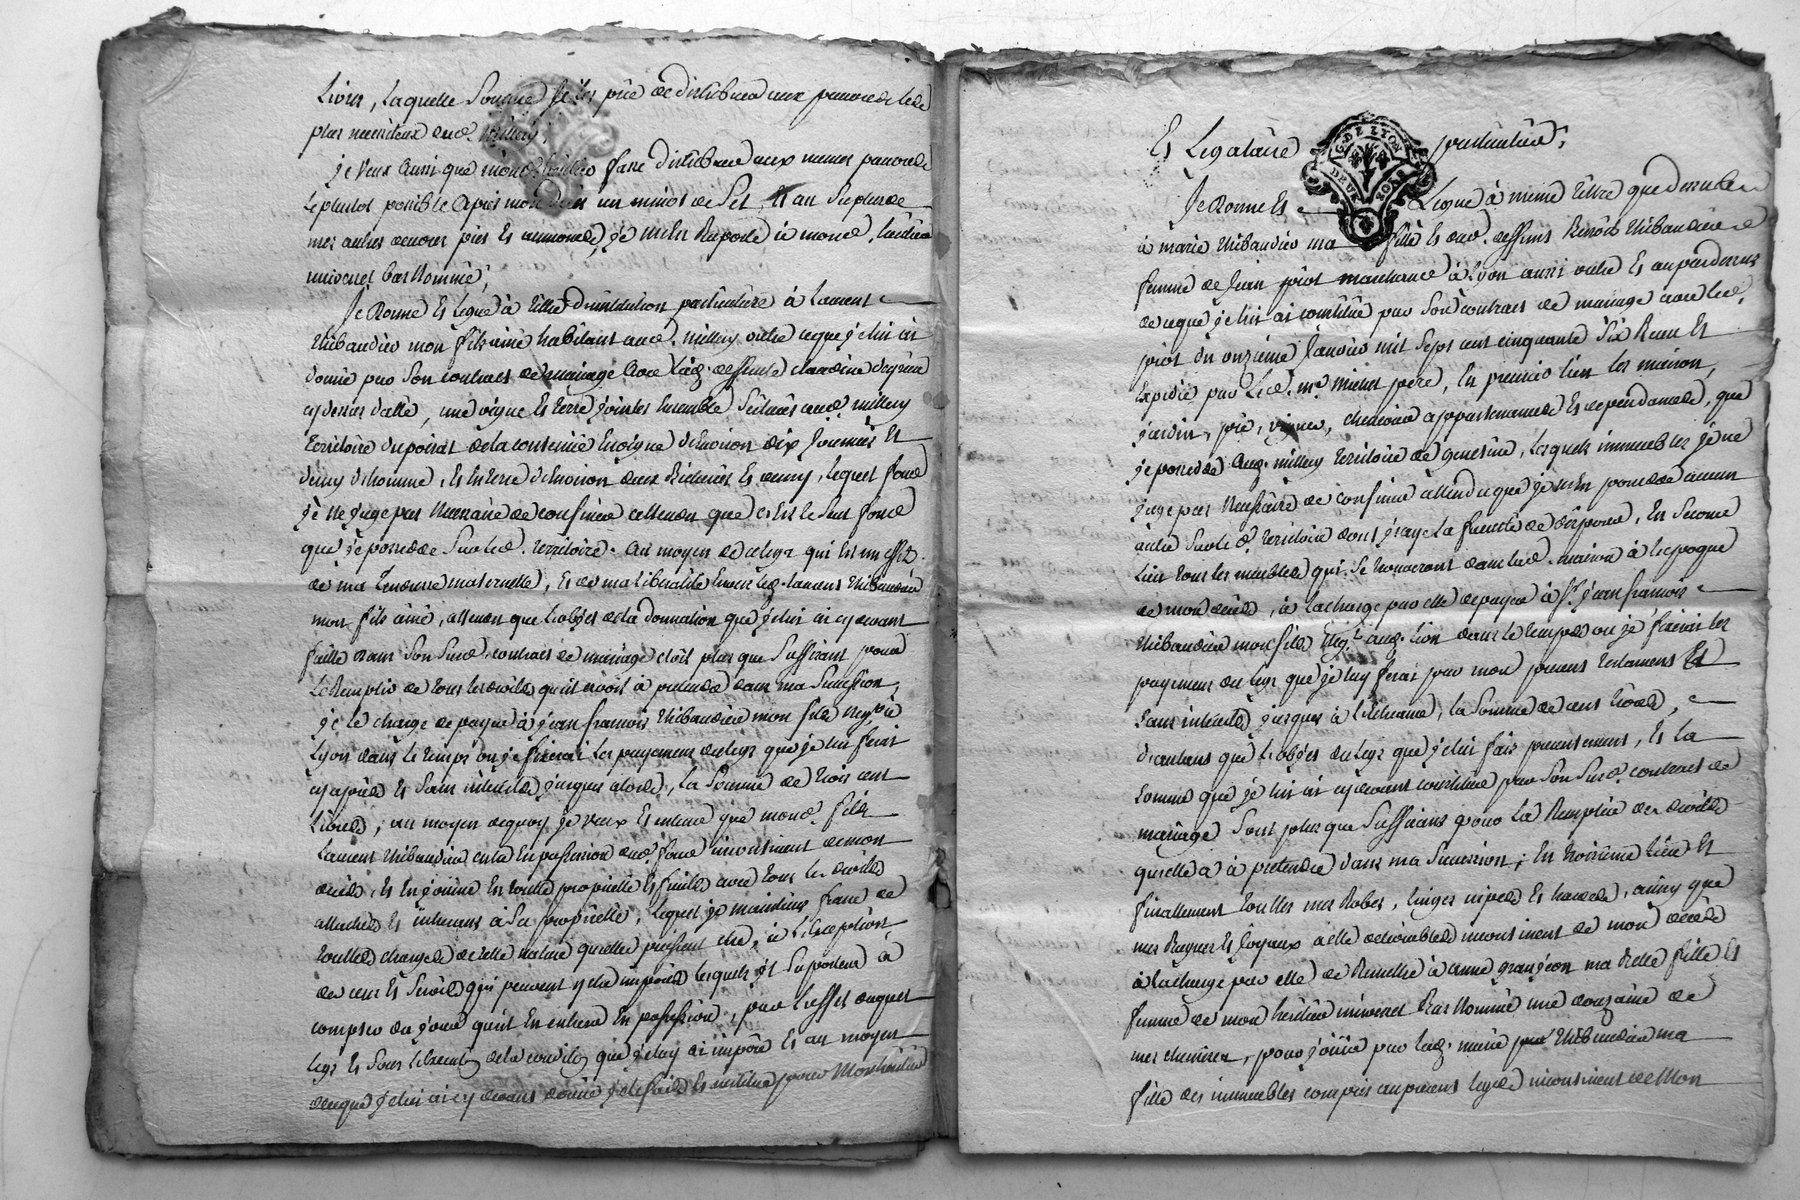 Livres, Laquelle Somme je les prie de distribuer aux pauvres de
plus necessiteux dud. Millery;
je veux aussi que mond. heritier fasse distribuer aux memes pauvres
le plustot possible apres mon un minot de Sel, et au surplus de
mes autres œuvres pies et aumones je m'en raporte a mond. heritier
universel bas Nommé;
Je Donne et Legue à titre d'institution particuliere à Laurent
thibaudier mon fils ainé habitant aud. Millery outre ce que je lui ai
donné par son contrat de mariage avec lad. deffunte claudine
cy dessus datté, une vigne et terre jointes ensemble situées aud. millery
territoire du poirat de la contenue en vigne d'environ dix hommées et
demy d'homme, et en terre d'environ deux bicherées et demy, lequel fond
je ne juge pas necessaire de confiner attendu que c'est le seul fond
que je possede sur led. territoire. au moyen de ce legs qui est un effet
de ma tendresse maternelle, et de ma liberalité envers led. laurent thibaudier
mon fils ainé, attendu que l'objet de la donnation que je lui ai cy devant
faitte dans son susd. contrat de mariage etoit plus que suffisant pour
le remplir de tous les droits qu'il avoit à pretendre dans ma succession,
je le charge de payer à jean francois thibaudier mon fils neg. à
Lyon dans le temps où je fixerai les payemens du legs que je lui ferai
cy après et sans intérêts jusques alors, la somme de trois cent
Livres, au moyen de quoy je veux et entend que mond. fils
Laurent thibaudier entre en possession dud. fond incontinent de mon
decès, et en jouisse en toute propriété et fruits avec tous les droits
attachés et inherens à sa propriété, lequel je maintiens franc de
touttes charges de telle nature qu'elles puissent etre, à l'exception
des cens et servis qui peuvent y etre imposés lesquels il suportera à
compter du jour qu'il en entrera en possession, pour l'effet duquel
legs et sous de la condition que je luy ai imposé et au moyen
de ce que je lui ai cy devant donné je le fais et institue pour Mon heritier
Et Legataire particulier;
G. DE LYON
DEUX SOLS
Je Donne et Legue à meme titre que dessus
à marie thibaudier ma fille et dud. deffunt Benoit thibaudier
femme de jean pirot marchand à Lyon aussi outre et au par dessus
de ce que je lui ai constitué par son contrat de mariage avec led.
pirot du onzieme Janvier mil sept cent cinquante six Reçu et
Expedié par Led. me. pere, en premier lieu les maison,
jardin, pré, vignes, appartenances et dependances, que
je possede aud. millery territoire de, lesquels immeubles je ne
juge pas necessaire de confiner attendu que je n'en possede aucun
autre sur led. territoire dont j'aye la faculté de disposer, en second
lieu tous les meubles qui se trouveront dans lad. maison à l'epoque
de mon decès, à la charge par elle de payer à sr. jean francois
thibaudier mon fils neg.t aud. Lion dans le temps où je fixerai les
payemens du legs que je luy ferai par mon présent testament Et
sans intérêts jusques à l'échéance, la somme de cent livres,
d'autant que l'objet du legs que je lui fais presentement, et la
somme que je lui ai cy devant constitué par son susd. contrat de
mariage sont plus que suffisans pour La Remplir des droits
qu'elle a à pretendre dans ma succession; en troisieme lieu et
finallement touttes mes Robes, linges nipes et hardes, ainsy que
mes Bagues et joyaux à elle delivrables incontinent de mon decès
à la charge par elle de Remettre à anne granjean ma Belle fille et
femme de mon heritier universel Bas Nommé une douzaine de
mes chemises, pour jouir par lad. marie thibaudier ma
fille des immeubles compris au present legs incontinent de Mon